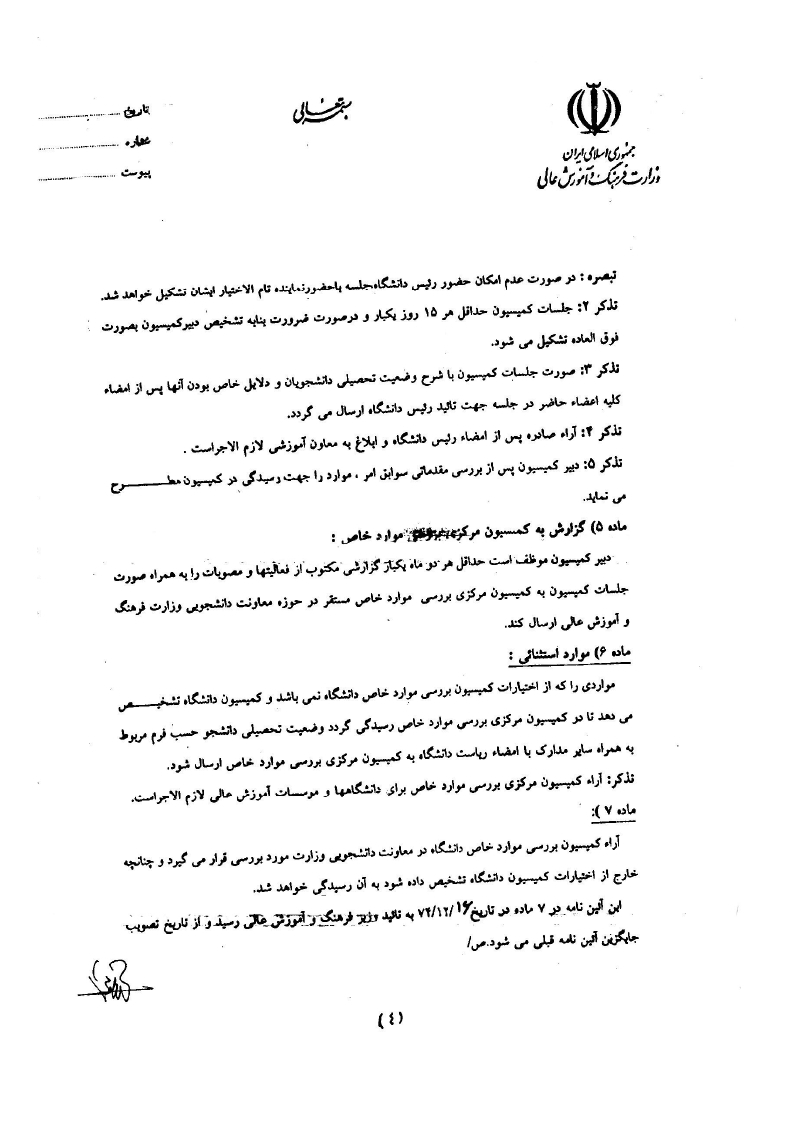 بسمه تعالی
جمهوری اسلامی ایران
وزارت فرهنگ و آموزش عالی
تاریخ
شماره
پیوست
تبصره : در صورت عدم امکان حضور رئیس دانشگاه،جلسه باحضورنماینده تام الاختیار ایشان تشکیل خواهد شد.
تذکر ۲: جلسات کمیسیون حداقل هر ۱۵ روز یکبار و درصورت ضرورت بنابه تشخیص دبیرکمیسیون بصورت
فوق العاده تشکیل می شود.
تذکر ۳: صورت جلسات کمیسیون با شرح وضعیت تحصیلی دانشجویان و دلایل خاص بودن آنها پس از امضاء
کلیه اعضاء حاضر در جلسه جهت تائید رئیس دانشگاه ارسال می گردد.
تذکر ۴: آراء صادره پس از امضاء رئیس دانشگاه و ابلاغ به معاون آموزشی لازم الاجراست .
تذکر ۵: دبیر کمیسیون پس از بررسی مقدماتی سوابق امر ، موارد را جهت رسیدگی در کمیسیون مطـــــرح
می نماید.
ماده ۵) گزارش به کمسیون مرکزی موارد خاص :
دبیر کمیسیون موظف است حداقل هر دو ماه یکبار گزارشی مکتوب از فعالیتها و مصوبات را به همراه صورت
جلسات کمیسیون به کمیسیون مرکزی بررسی موارد خاص مستقر در حوزه معاونت دانشجویی وزارت فرهنگ
و آموزش عالی ارسال کند.
ماده ۶) موارد استثنائی :
مواردی را که از اختیارات کمیسیون بررسی موارد خاص دانشگاه نمی باشد و کمیسیون دانشگاه تشخیــــص
می دهد تا در کمیسیون مرکزی بررسی موارد خاص رسیدگی گردد وضعیت تحصیلی دانشجو حسب فرم مربوط
به همراه سایر مدارک با امضاء ریاست دانشگاه به کمیسیون مرکزی بررسی موارد خاص ارسال شود.
تذکر: آراء کمیسیون مرکزی بررسی موارد خاص برای دانشگاهها و موسسات آموزش عالی لازم الاجراست.
ماده ۷ ):
آراء کمیسیون بررسی موارد خاص دانشگاه در معاونت دانشجویی وزارت مورد بررسی قرار می گیرد و چنانچه
خارج از اختیارات کمیسیون دانشگاه تشخیص داده شود به آن رسیدگی خواهد شد.
این آئین نامه در ۷ ماده در تاریخ ۷۴/۱۲/۱۶ به تائید وزیر فرهنگ و آموزش عالی رسید و از تاریخ تصویب
جایگزین آئین نامه قبلی می شود.ص/
(٤)